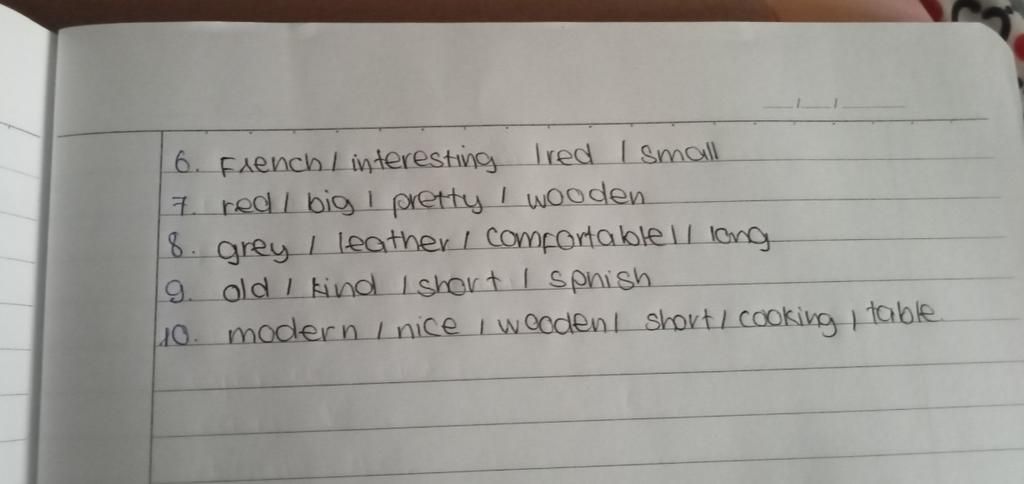 6. French / interesting / red / small
7. red / big / pretty / wooden
8. grey / leather / comfortable / / long
9. old / kind / short / spnish
10. modern / nice / wooden / short / cooking / table